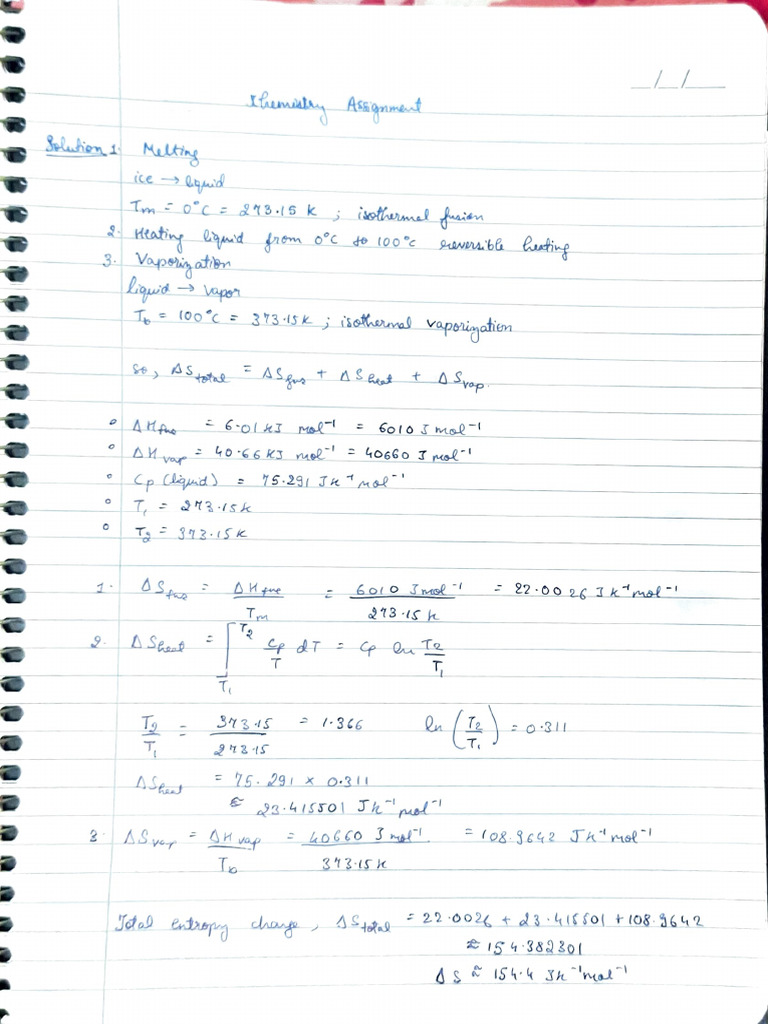 __/__/____
Chemistry Assignment
Solution 1. Melting
ice → liquid
Tm = 0°C = 273.15 K ; isothermal fusion
2. Heating liquid from 0°C to 100°C reversible heating
3. Vaporization
liquid → vapor
Tb = 100°C = 373.15K ; isothermal vaporization
So, ΔStotal = ΔSfus + ΔSheat + ΔSvap.
° ΔHfus = 6.01 KJ mol⁻¹ = 6010 J mol⁻¹
° ΔHvap = 40.66 KJ mol⁻¹ = 40660 J mol⁻¹
° Cp (liquid) = 75.291 JK⁻¹ mol⁻¹
° T₁ = 273.15K
° T₂ = 373.15K
1. ΔSfus = ΔHfus / Tm = 6010 J mol⁻¹ / 273.15 K = 22.0026 J K⁻¹ mol⁻¹
2. ΔSheat = ∫T₁ T₂ Cp/T dT = Cp ln T₂/T₁
T₂/T₁ = 373.15/273.15 = 1.366 ln (T₂/T₁) = 0.311
ΔSheat = 75.291 × 0.311
≈ 23.415501 JK⁻¹ mol⁻¹
3. ΔSvap = ΔHvap / Tb = 40660 J mol⁻¹ / 373.15K = 108.9642 JK⁻¹ mol⁻¹
Total entropy change, ΔStotal = 22.0026 + 23.415501 + 108.9642
≈ 154.382301
ΔS ≈ 154.4 JK⁻¹ mol⁻¹